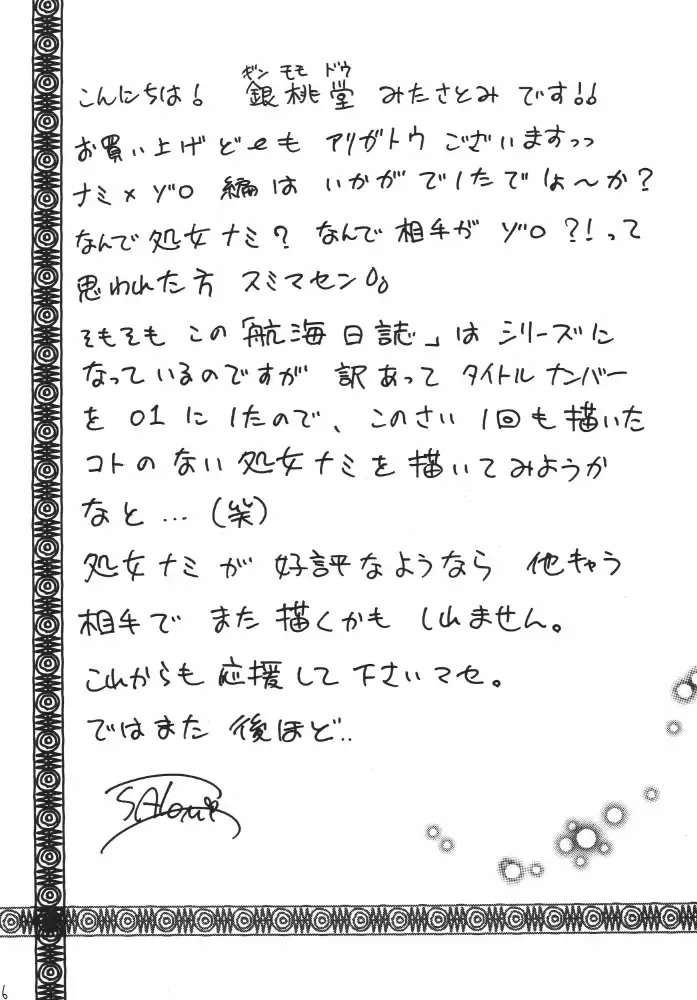 ギンモモドウ
こんにちは! 銀桃堂 みたさとみ です!!
お買い上げどーもアリガトウございますっっ
ナミ×ゾロ 編は いかがでしたでしょ〜か?
なんで処女ナミ? なんで相手が ゾロ?!って
思われた方 スミマセン
そもそも この「航海日誌」は シリーズに
なっているのですが 訳あって タイトルナンバー
を 01 に したので、このさい 1回も描いた
コトのない 処女ナミを描いてみようか
なと…(笑)
処女ナミが 好評なようなら 他キャラ
相手で また描くかも しれません。
これからも応援して下さいマセ。
ではまた 後ほど..
SAtomi
6